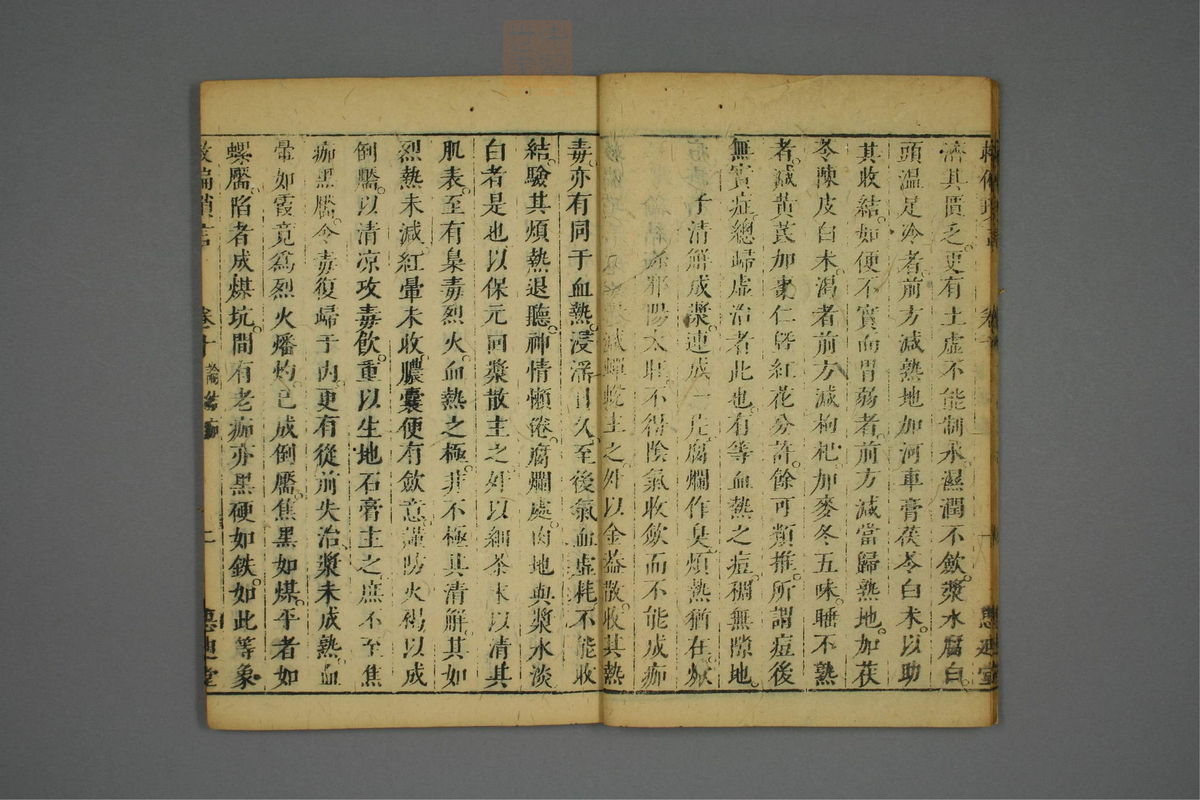 濟其匱乏更有土虛不能制水濕潤不斂漿水腐白
頭溫足冷者前方減熟地加河車膏茯苓白朮以助
其收結如便不實而胃弱者前方減當歸熟地加茯
苓陳皮白朮渴者前方減枸杞加麥冬五味睡不熟
者減黃芪加棗仁暨紅花分許餘可類推所謂痘後
無實症總歸虛治者此也有等血熱之痘稠無隙地
清解成漿連成一片腐爛作臭煩熱猶在
邪陽太旺不得陰氣收斂而不能成痂
減蟬蛻主之外以金益散收其熱
毒亦有同于血熱浸淫日久至後氣血虛耗不能收
結驗其煩熱退聽神情懶倦腐爛處肉地與漿水淡
白者是也以保元回漿散主之外以細茶末以清其
肌表至有梟毒烈火血熱之極非不極其清解其如
烈熱未減紅暈未收膿囊便有斂意謹防火褐以成
倒靨以清涼攻毒飲重以生地石膏主之庶不至焦
痂黑靨令毒復歸于內更有從前失治漿未成熟血
暈如霞竟為烈火燔灼已成倒靨焦黑如煤平者如
螺靨陷者成煤坑間有老痂亦黑硬如鉄如此等象
卷十